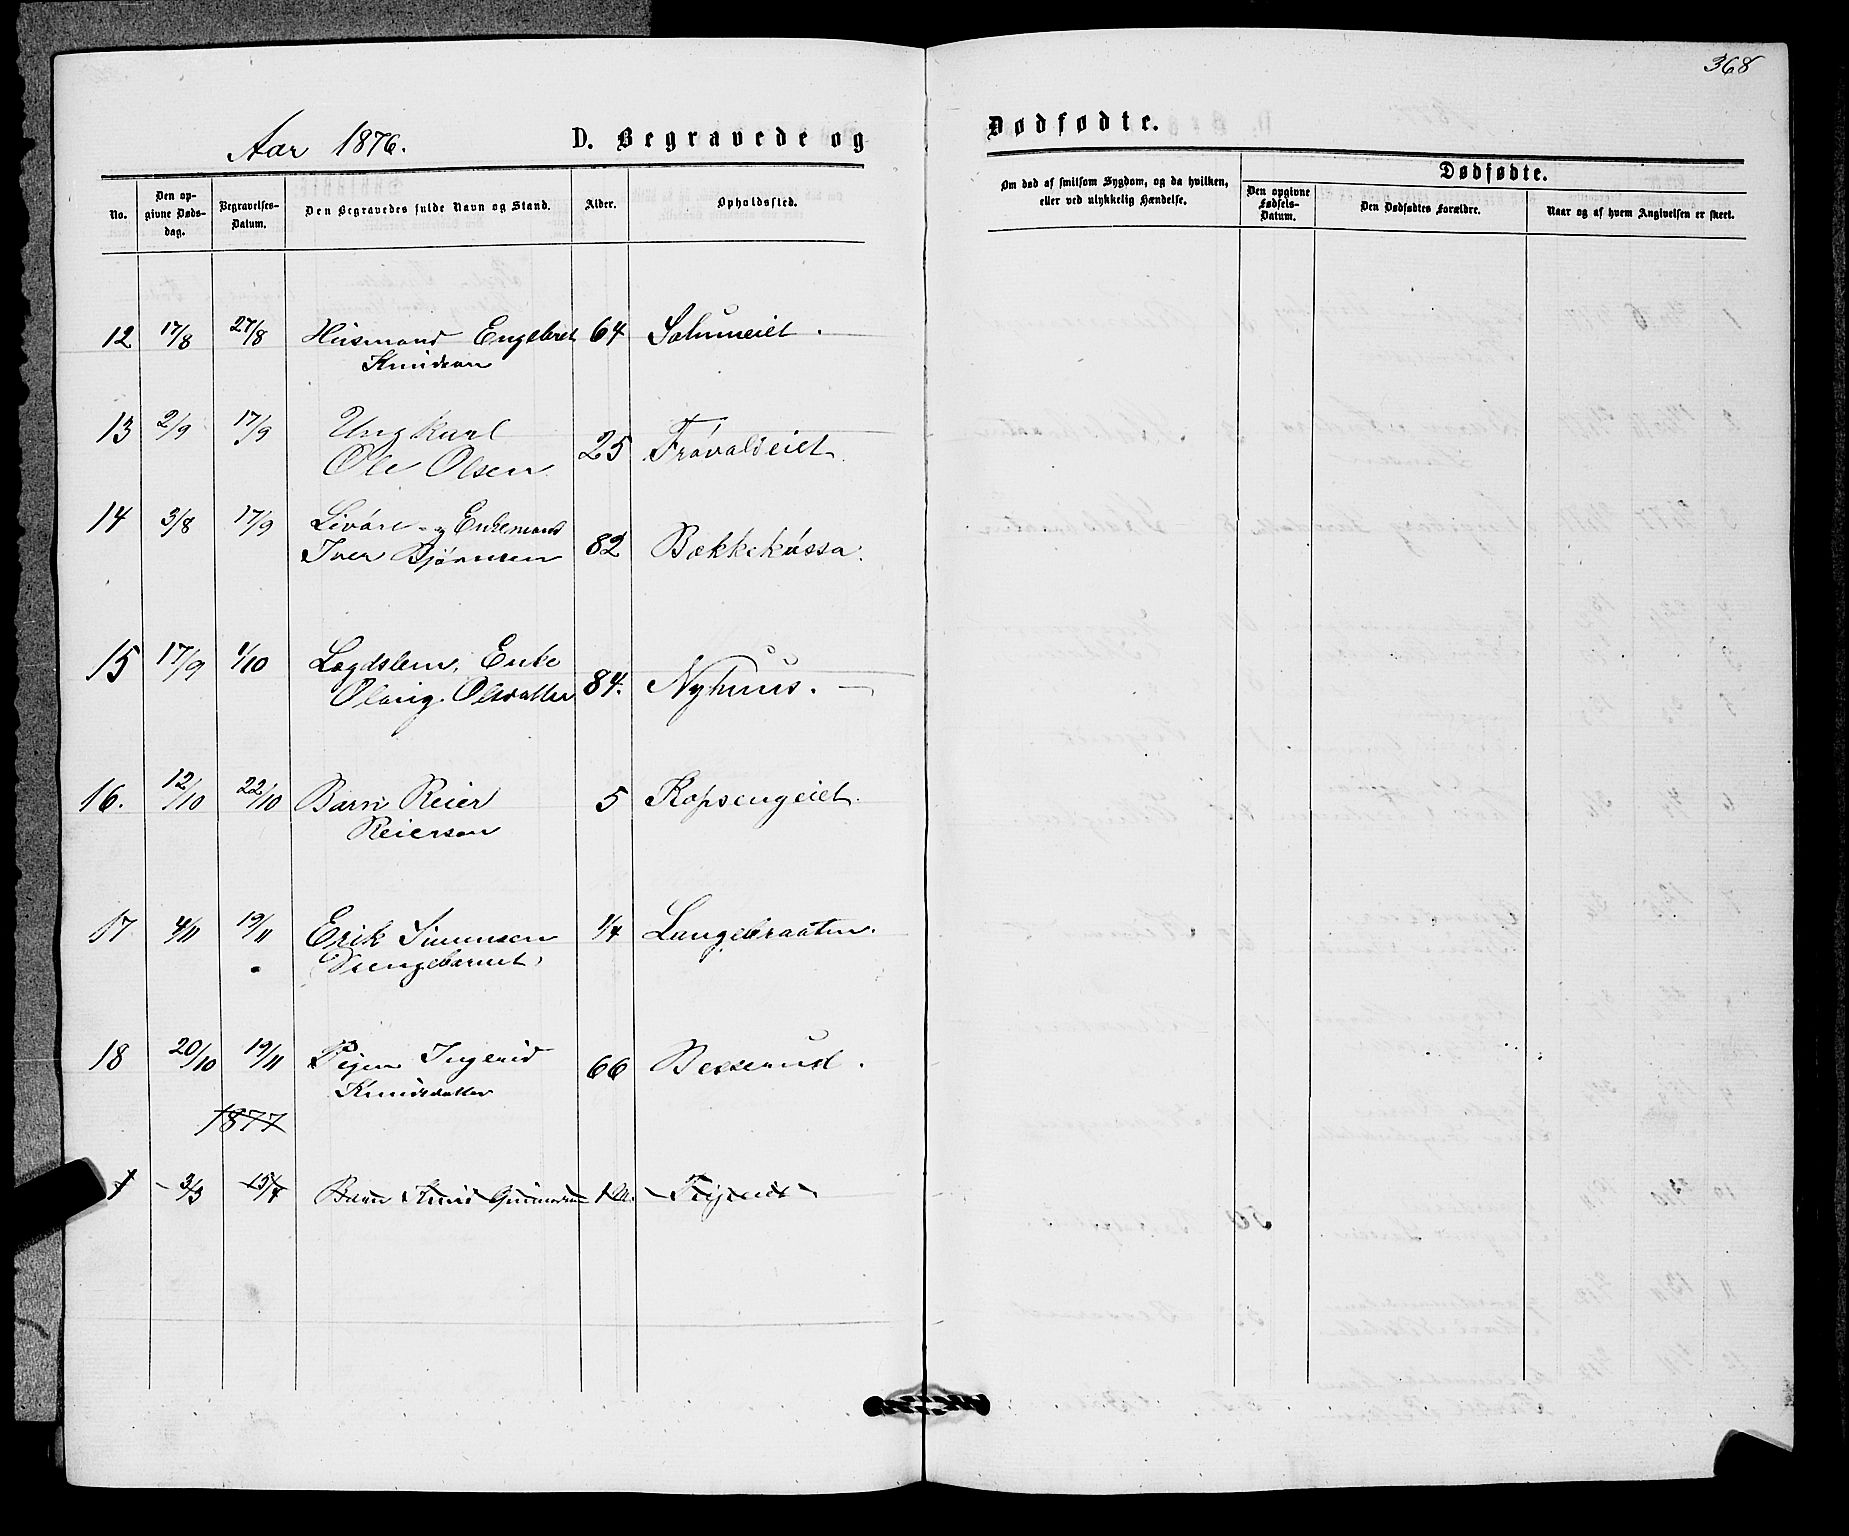 368
Aar 1876.
D. Begravede og Dødfødte.
No.
Den opgivne Dødsdag.
Begravelses-Datum.
Den Begravedes fulde Navn og Stand.
Alder.
Opholdssted.
Om død af smitsom Sygdom, og da hvilken, eller ved ulykkelig Hændelse.
Dødfødte.
Den opgivne Fødsels-Datum.
Den Dødfødtes Forældre.
Naar og af hvem Angivelsen er skeet.
12 17/8 27/8 Husmand Engebret 64 Solumeiet.
Knudsen
13 2/9 17/9 Ungkarl
Ole Olsen 25 Frövoldeiet.
14 3/8 17/9 Livöre- og Enkemand
Iver Bjørnsen 82 Bækkekåssa.
15 17/9 1/10 Lægdslem, Enke
Olsdatter 84. Nyhuus.
16. 12/10 22/10 Barn Reier 5 Kopsengeiet.
Reiersen
17 4/11 19/11 Erik Simensen 1/4 Langebraaten.
Drengebarnet
18 20/10 19/11 Pigen Ingerid 66 Besserud.
Knudsdatter
1877
1 3/3 15/7 Barn Gunders